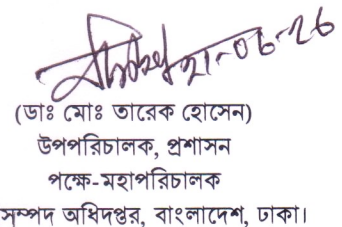 ২১-০৬-২৬
(ডাঃ মোঃ তারেক হোসেন)
উপপরিচালক, প্রশাসন
পক্ষে-মহাপরিচালক
সম্পদ অধিদপ্তর, বাংলাদেশ, ঢাকা।